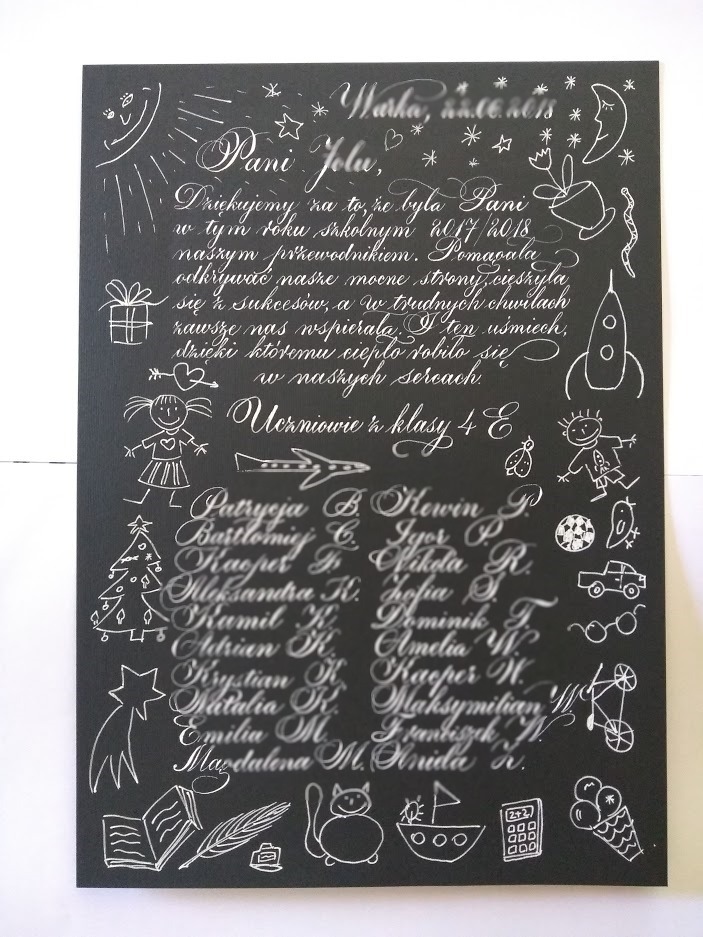 Warka, 22.06.2018
Pani Jolu,
Dziękujemy za to, że była Pani
w tym roku szkolnym 2017/2018
naszym przewodnikiem. Pomagała
odkrywać nasze mocne strony, cieszyła
się z sukcesów, a w trudnych chwilach
zawsze nas wspierała. I ten uśmiech,
dzięki któremu ciepło robiło się
w naszych sercach.
Uczniowie z klasy 4 E
Patrycja B. Kewin P.
Bartłomiej C. Igor P.
Kacper F. Nikola R.
Aleksandra K. Zofia S.
Kamil K. Dominik T.
Adrian K. Amelia W.
Krystian K. Kacper W.
Natalia K. Maksymilian W.
Emilia M. Franciszek W.
Magdalena M. Z.
2+2